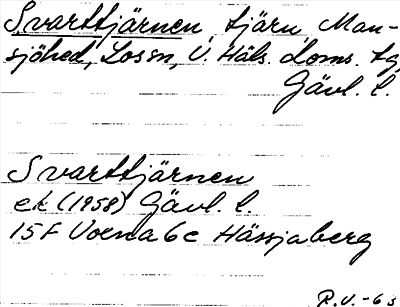 Svarttjärnen, tjärn, Man-
sjöhed, Lossn, V. Häls. doms. tg,
Gävl. l.
Svarttjärnen
ek (1958) Gävl. l.
15F Voxna 6c Hässjaberg
R.V.-63